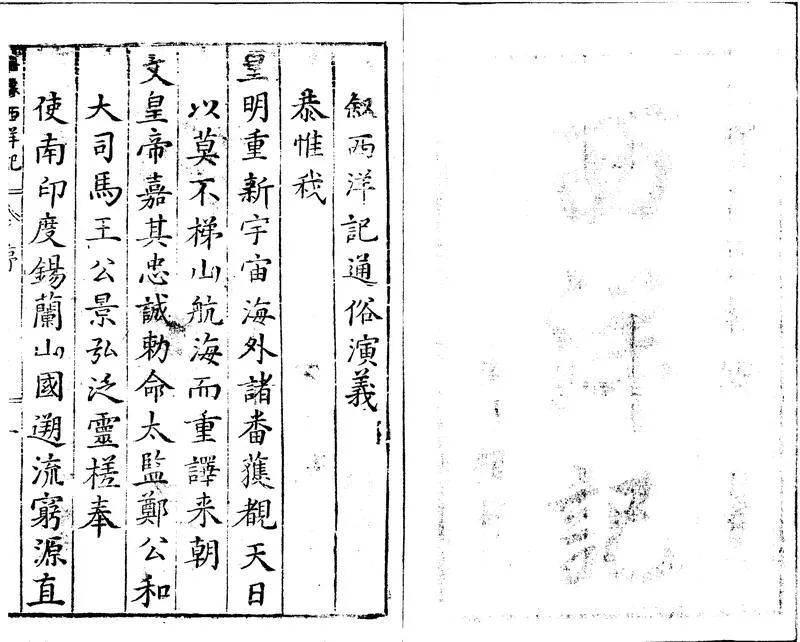 西洋記
敘西洋記通俗演義
恭惟我
皇明重新宇宙海外諸番獲覩天日
以莫不梯山航海而重譯来朝
文皇帝嘉其忠誠勅命太監鄭公和
大司馬王公景弘泛靈槎奉
使南印度錫蘭山國遡流窮源直
西洋記
序
一